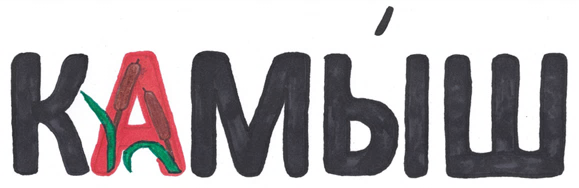 КАМЫ́Ш